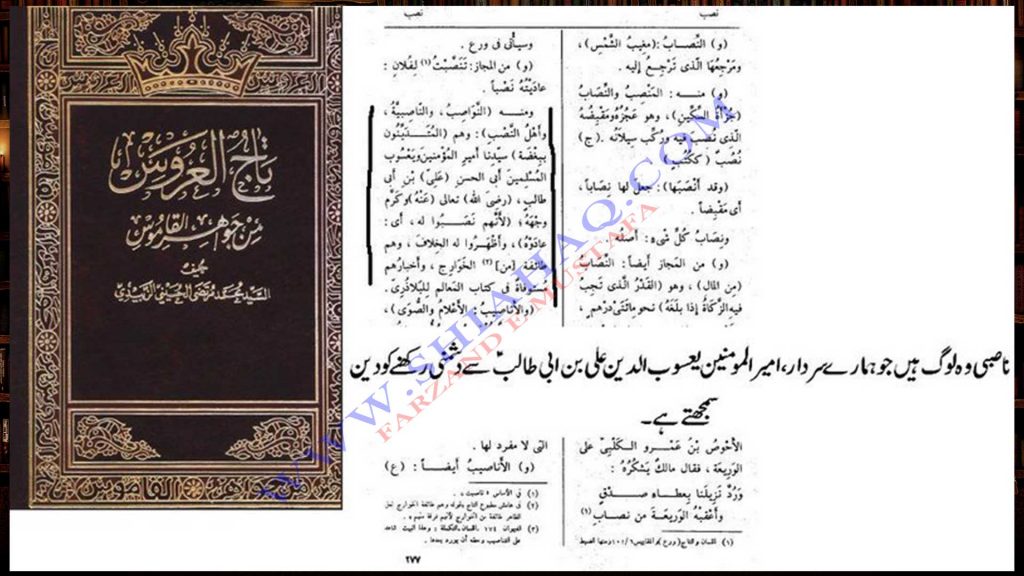 تاج العروس
من جواهر القاموس
تأليف
السيد محمد مرتضى الحسيني الزبيدي
نصب
نصب
(و) النِّصَابُ: (مَغِيبُ الشَّمْسِ)،
ومَرْجِعُهَا الَّذي تَرْجِعُ إليه.
(و) منه: المَنْصِبُ والنِّصَابُ
(جُزْأَةُ السِّكِّينِ)، وهو عَجُزُهُ ومَقْبِضُهُ
الَّذي نُصِبَ فيه ورُكِّبَ سِيلَانُهُ. (ج)
نُصُبٌ (ككُتُبٍ)
(وقد أَنْصَبَها): جعلَ لها نِصَاباً،
أَي مَقْبِضاً.
ونِصَابُ كلِّ شيءٍ: أَصلُه.
(و) من المَجاز أيضاً: النِّصَابُ
(من المالِ)، وهو (القَدْرُ الَّذي تَجِبُ
فيه الزَّكَاةُ إذا بلَغَهُ) نحو مائَتَيْ دِرْهمٍ،
وسيأتى فى ورع.
(و) من المجاز: تَنَصَّبْتُ (١) لِفُلانٍ:
عادَيْتُهُ نَصْباً.
ومنه (النَّوَاصِبُ، والنَّاصِبِيَّةُ،
وأَهْلُ النَّصْبِ): وهم (المُتَدَيِّنُون
بِبِغْضَةِ) سيّدِنا أميرِ المُؤْمنينَ ويَعْسُوبِ
المُسْلِمينَ أبى الحسن (عَلىِّ) بنِ أبى
طالبٍ، (رضِيَ اللهُ) تعالى (عَنْهُ) وكَرَّمَ
وجْهَهُ؛ (لأنَّهم نَصَبُوا له، أى:
عادَوْهُ)، وأَظْهَرُوا له الخِلافَ، وهم
طائفة [من] (٢) الخَوَارِج، وأخبارُهم
مُسْتَوفاةٌ فى كتاب المَعالم لِلبَلاذُرِىّ.
(والأَناصِيبُ: الأَعْلامُ والصُّوَى)،
ناصبی وہ لوگ ہیں جو ہمارے سردار، امیر المومنین یعسوب الدین علی بن ابی طالبؑ سے دشمنی رکھنے کو دین
سمجھتے ہے۔
الأَحْوَصُ بْنُ عَمْرٍو الكَلْبِىُّ على
الوَرِيعَةِ، فقال مالكٌ يَشْكُرُهُ:
ورُدَّ نَزِيلَنا بِعطاءِ صِدْقٍ
وأَعْقِبْهُ الوَرِيعَةَ من نِصابِ (١)
(١) اللسان والتاج (ورع) والمقاييس ٦/١٠١ ومنها الضبط
التى لا مفرد لها.
(و) الأَناصِيبُ أيضاً: (ع)
(١) فى الأساس « ناصبت ».
(٢) فى هامش مطبوع التاج
(٣)
٢٧٧
WWW.SHIAHAQ.COM
FARZAND E MUSTAFA